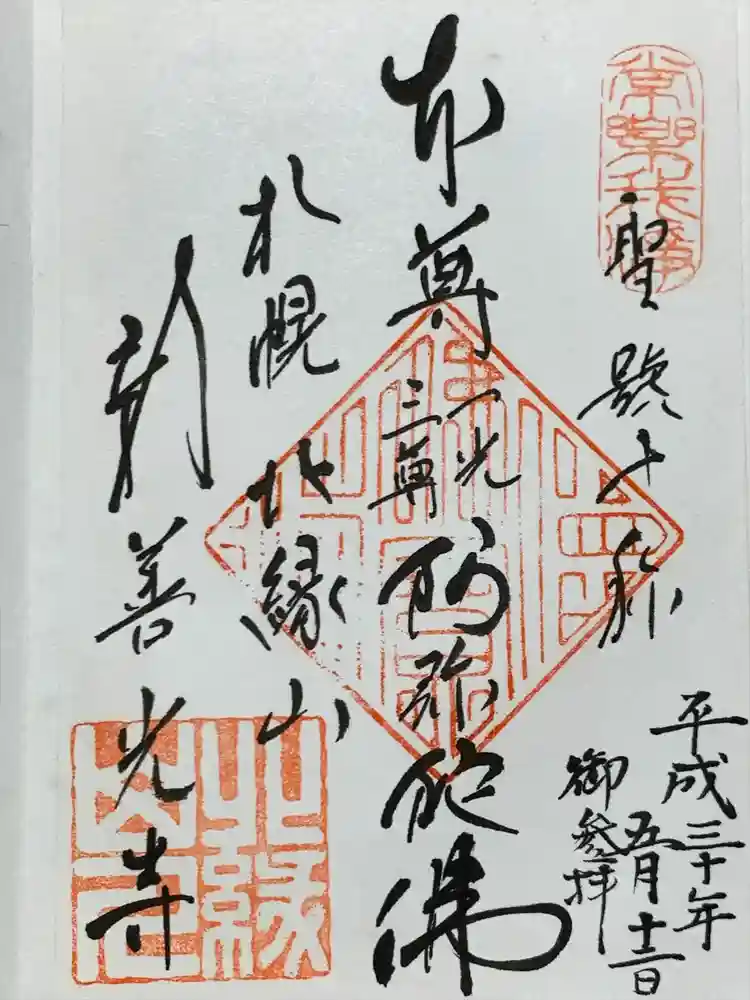 常樂我淨
聖號十称
平成三十年
五月十三日
御参拝
本尊
一光
三尊
阿弥陀佛
札幌
北縁山
新善光寺
北縁